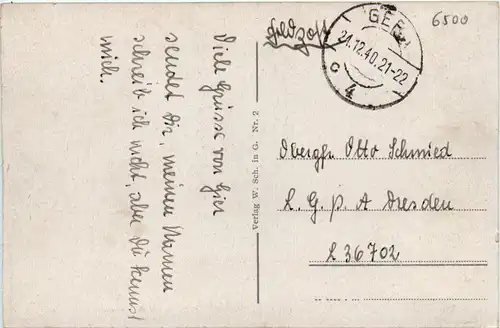 Feldpost
GER
21.12.40.21-22
c
4
6500
Viele Grüsse von hier
sendet Dir, meinen Namen
schreib ich nicht, aber Du kennst
mich.
Verlag W. Sch. in G. Nr. 2
Obergfr. Otto Schmied
L. G. P. A Dresden
L 36702